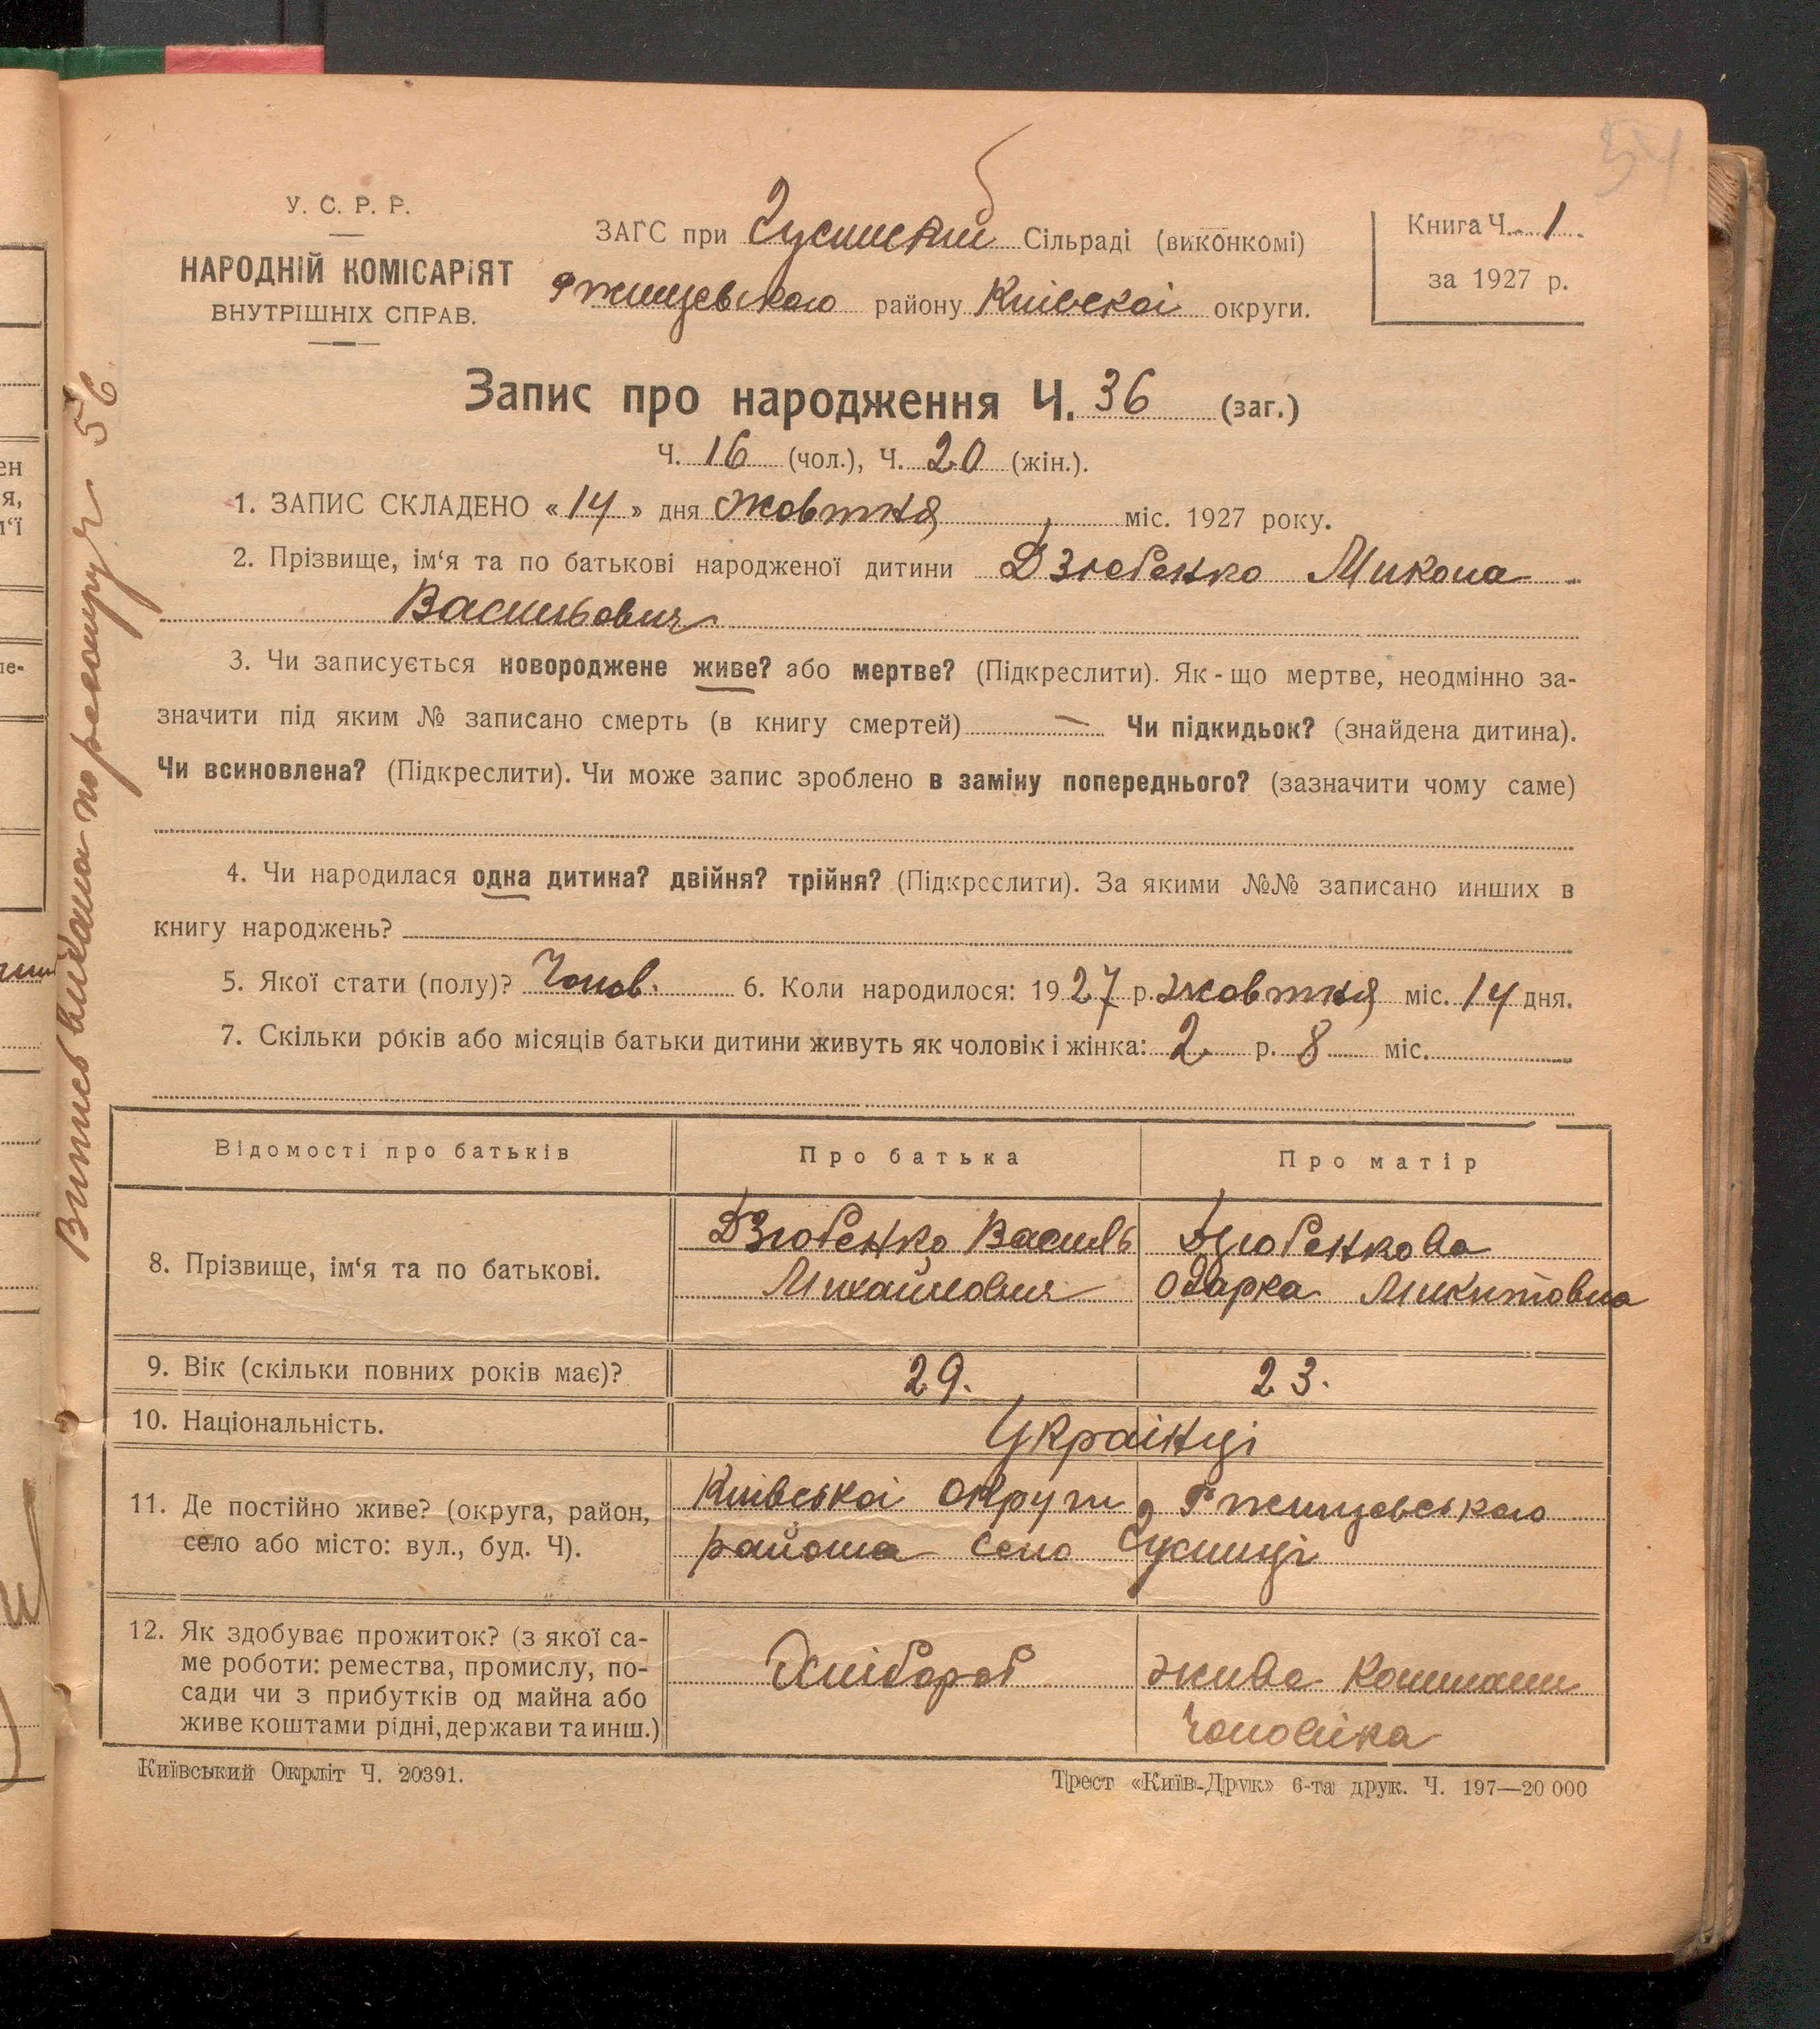 54
У. С. Р. Р.
НАРОДНІЙ КОМІСАРІЯТ
ВНУТРІШНІХ СПРАВ.
ЗАГС при Гусинскій Сільраді (виконкомі)
Ржищевського району Київскоі округи.
Книга Ч. 1.
за 1927 р.
Запис про народження Ч. 36 (заг.)
Ч. 16 (чол.), Ч. 20 (жін.).
1. ЗАПИС СКЛАДЕНО «14» дня жовтня міс. 1927 року.
2. Прізвище, ім‘я та по батькові народженої дитини Дзюбенко Микола
Васильович
3. Чи записується новороджене живе? або мертве? (Підкреслити). Як-що мертве, неодмінно за-
значити під яким № записано смерть (в книгу смертей) — Чи підкидьок? (знайдена дитина).
Чи всиновлена? (Підкреслити). Чи може запис зроблено в заміну попереднього? (зазначити чому саме)
4. Чи народилася одна дитина? двійня? трійня? (Підкреслити). За якими №№ записано инших в
книгу народжень?
5. Якої стати (полу)? Чолов. 6. Коли народилося: 1927 р. жовтня міс. 14 дня.
7. Скільки років або місяців батьки дитини живуть як чоловік і жінка: 2 р. 8 міс.
Відомості про батьків
Про батька
Про матір
8. Прізвище, ім‘я та по батькові.
Дзюбенко Василь
Михайлович
Дзюбенкова
Одарка Микитовна
9. Вік (скільки повних років має)?
29.
23.
10. Національність.
Украінці
11. Де постійно живе? (округа, район,
село або місто: вул., буд. Ч).
Київськоі округи Ржищевського
района село Гусинці
12. Як здобуває прожиток? (з якої са-
ме роботи: ремества, промислу, по-
сади чи з прибутків од майна або
живе коштами рідні, держави та инш.)
Хлібороб
живе коштами
Чоловіка
Київський Окрліт Ч. 20391.
Трест «Київ-Друк» 6-та друк. Ч. 197—20 000
Випись видана по реєстру № 56